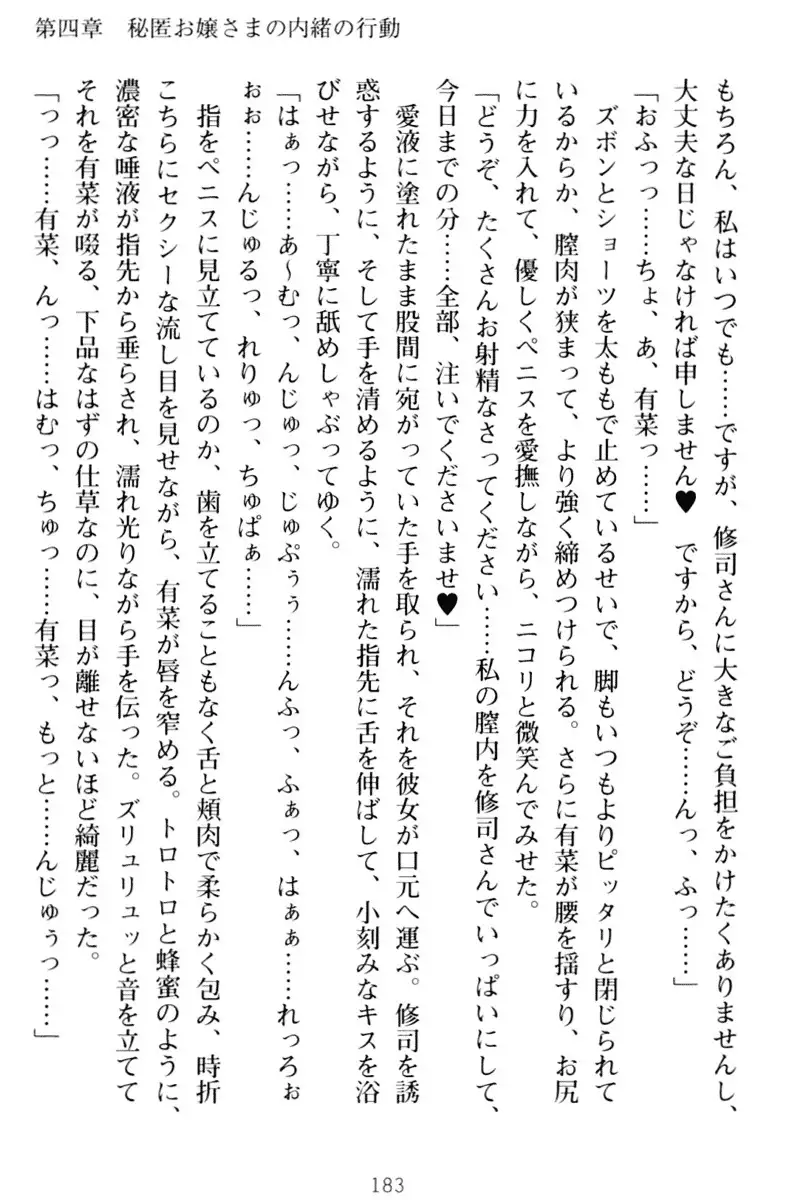 第四章　秘匿お嬢さまの内緒の行動
もちろん、私はいつでも……ですが、修司さんに大きなご負担をかけたくありませんし、
大丈夫な日じゃなければ申しません♥　ですから、どうぞ……んっ、ふっ……」
「おふっっ……ちょ、あ、有菜っ……」
ズボンとショーツを太ももで止めているせいで、脚もいつもよりピッタリと閉じられて
いるからか、膣肉が狭まって、より強く締めつけられる。さらに有菜が腰を揺すり、お尻
に力を入れて、優しくペニスを愛撫しながら、ニコリと微笑んでみせた。
「どうぞ、たくさんお射精なさってください……私の膣内を修司さんでいっぱいにして、
今日までの分……全部、注いでくださいませ♥」
愛液に塗れたまま股間に宛がっていた手を取られ、それを彼女が口元へ運ぶ。修司を誘
惑するように、そして手を清めるように、濡れた指先に舌を伸ばして、小刻みなキスを浴
びせながら、丁寧に舐めしゃぶってゆく。
「はぁっ……あ〜むっ、んじゅっ、じゅぷぅぅ……んふっ、ふぁっ、はぁぁ……れっろぉ
ぉぉ……んじゅるっ、れりゅっ、ちゅぱぁ……」
指をペニスに見立てているのか、歯を立てることもなく舌と頬肉で柔らかく包み、時折
こちらにセクシーな流し目を見せながら、有菜が唇を窄める。トロトロと蜂蜜のように、
濃密な唾液が指先から垂らされ、濡れ光りながら手を伝った。ズリュリュッと音を立てて
それを有菜が啜る、下品なはずの仕草なのに、目が離せないほど綺麗だった。
「っっ……有菜、んっ……はむっ、ちゅっ……有菜っ、もっと……んじゅぅっ……」
183